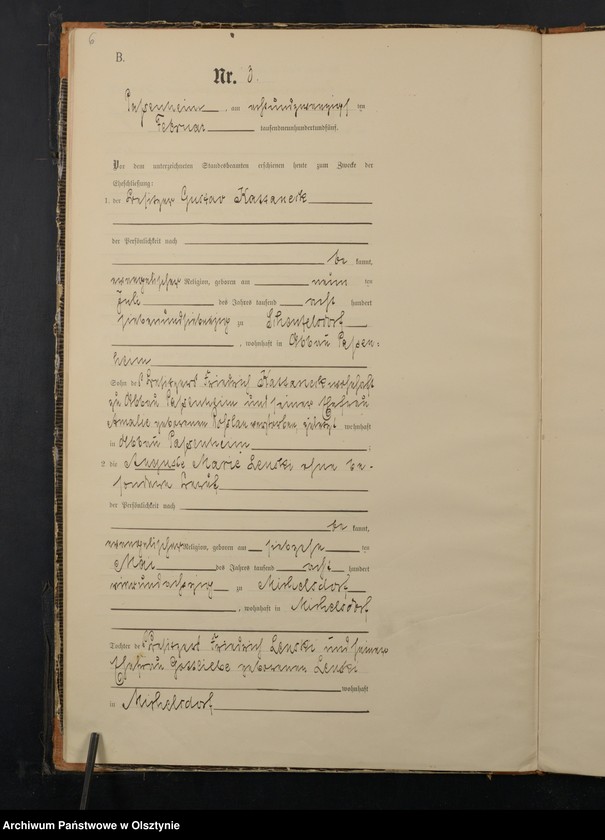 6
B.
Nr. 3.
Passenheim, am achtundzwanzigsten
Februar tausendneunhundertundfünf.
Vor dem unterzeichneten Standesbeamten erschienen heute zum Zwecke der
Eheschließung:
1. der Besitzer Gustav Kassaneck
der Persönlichkeit nach
be kannt,
evangelischer Religion, geboren am neun ten
Juli des Jahres tausend acht hundert
siebenundsiebenzig zu
, wohnhaft in Abbau Passen=
heim
Sohn des Besitzers Friedrich Kassaneck wohnhaft
zu Abbau Passenheim und seiner Ehefrau
Amalie geborenen verstorben, zuletzt wohnhaft
in Abbau Passenheim ;
2. die Auguste Marie Lenski ohne be-
sonderen Beruf
der Persönlichkeit nach
be kannt,
evangelischer Religion, geboren am siebzehn ten
Mai des Jahres tausend acht hundert
vierundachtzig zu Michelsdorf
, wohnhaft in Michelsdorf
Tochter des Besitzers Friedrich Lenski und seiner
Ehefrau Gottliebe geborenen Lenski
wohnhaft
in Michelsdorf
Archiwum Państwowe w Olsztynie